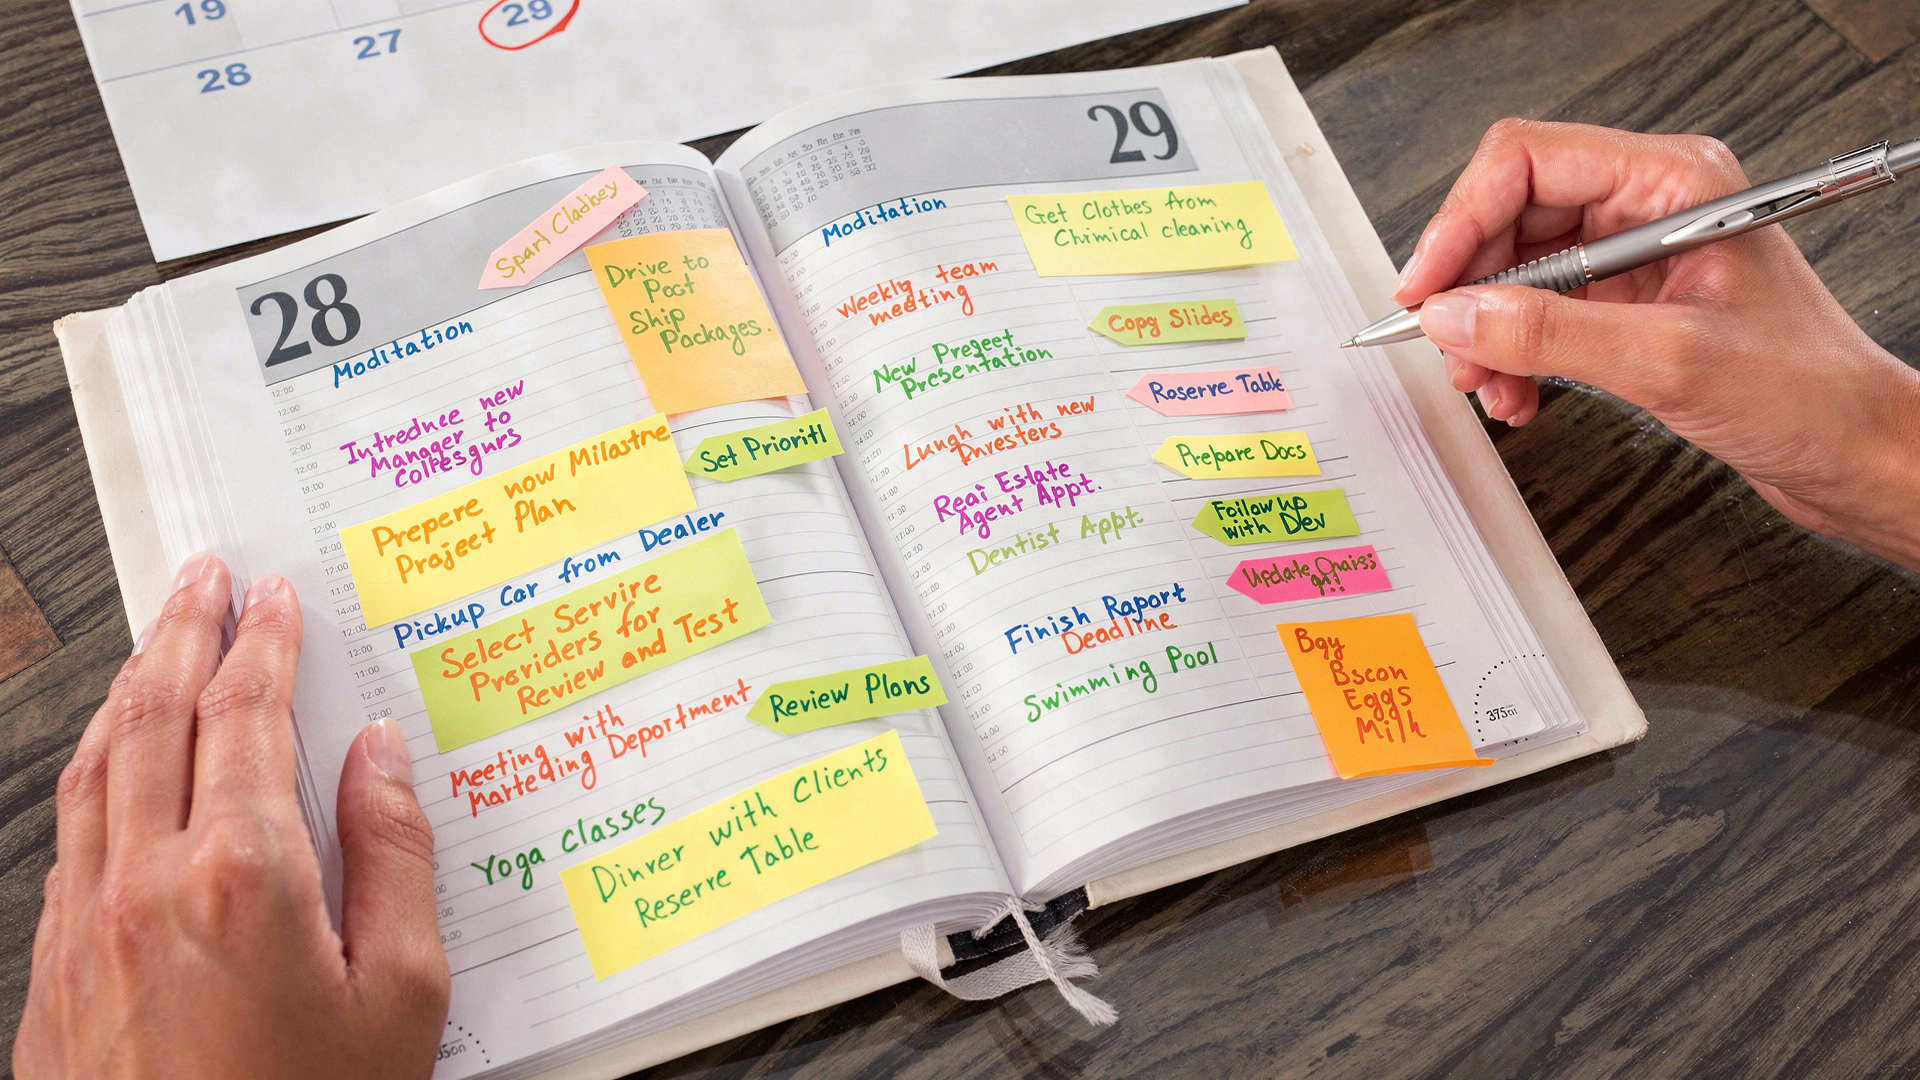 19
27
29
28
28
Sparl Cladbey
Moditation
Drive to
Poct
Ship
Packages.
Intrednce new
Manager to
Set Prioritl
Prepere now Milastne
Project Plan
Pickup Car from Dealer
Select Servire
Providers for
Review and Test
Meeting with
Marteding Deportment
Review Plans
Yoga classes
Dinver with Clients
Reserre Table
29
Moditation
Get Clotbes from
Chrimical cleaning
Weekly team
meeting
Copy Slides
New Preject
Presentation
Roserve Table
Lungh with new
Investers
Prepare Docs
Reai Estate
Agent Appt.
Follow up
with Dev
Dentist Appt.
Update
Finish Raport
Deadline
Swimming Pool
Bgy
Bscon
Eggs
Milk